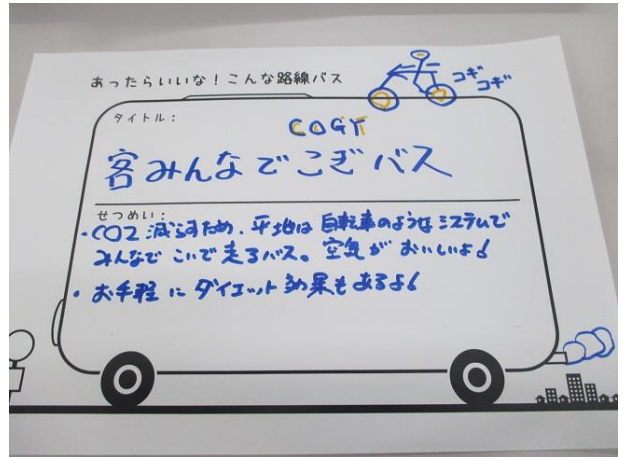 あったらいいな！こんな路線バス
コギコギ
タイトル：
COGY
客みんなでこぎバス
せつめい：
・CO2減らすため、平地は自転車のようなシステムで
みんなでこいで走るバス。空気がおいしいよ！
・お手軽にダイエット効果もあるよ！